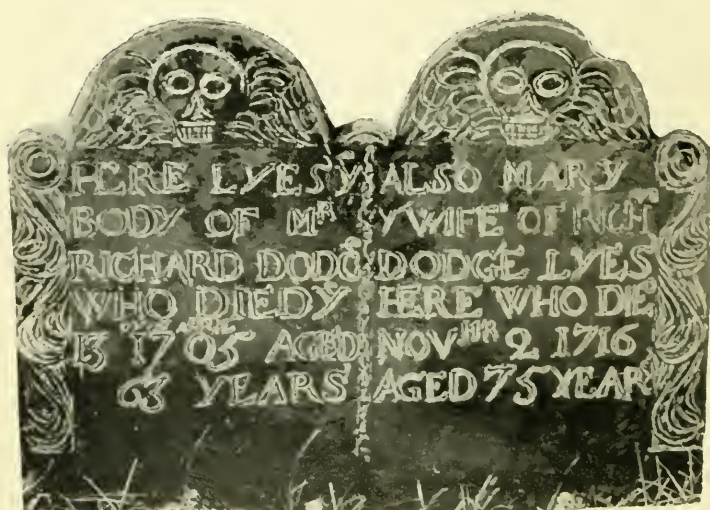 HERE LYES Y
BODY OF MR
RICHARD DODG
WHO DIED Y
13 1705 AGED
63 YEARS
ALSO MARY
Y WIFE OF RICH
DODGE LYES
HERE WHO DIE
NOVMR 2 1716
AGED 75 YEAR